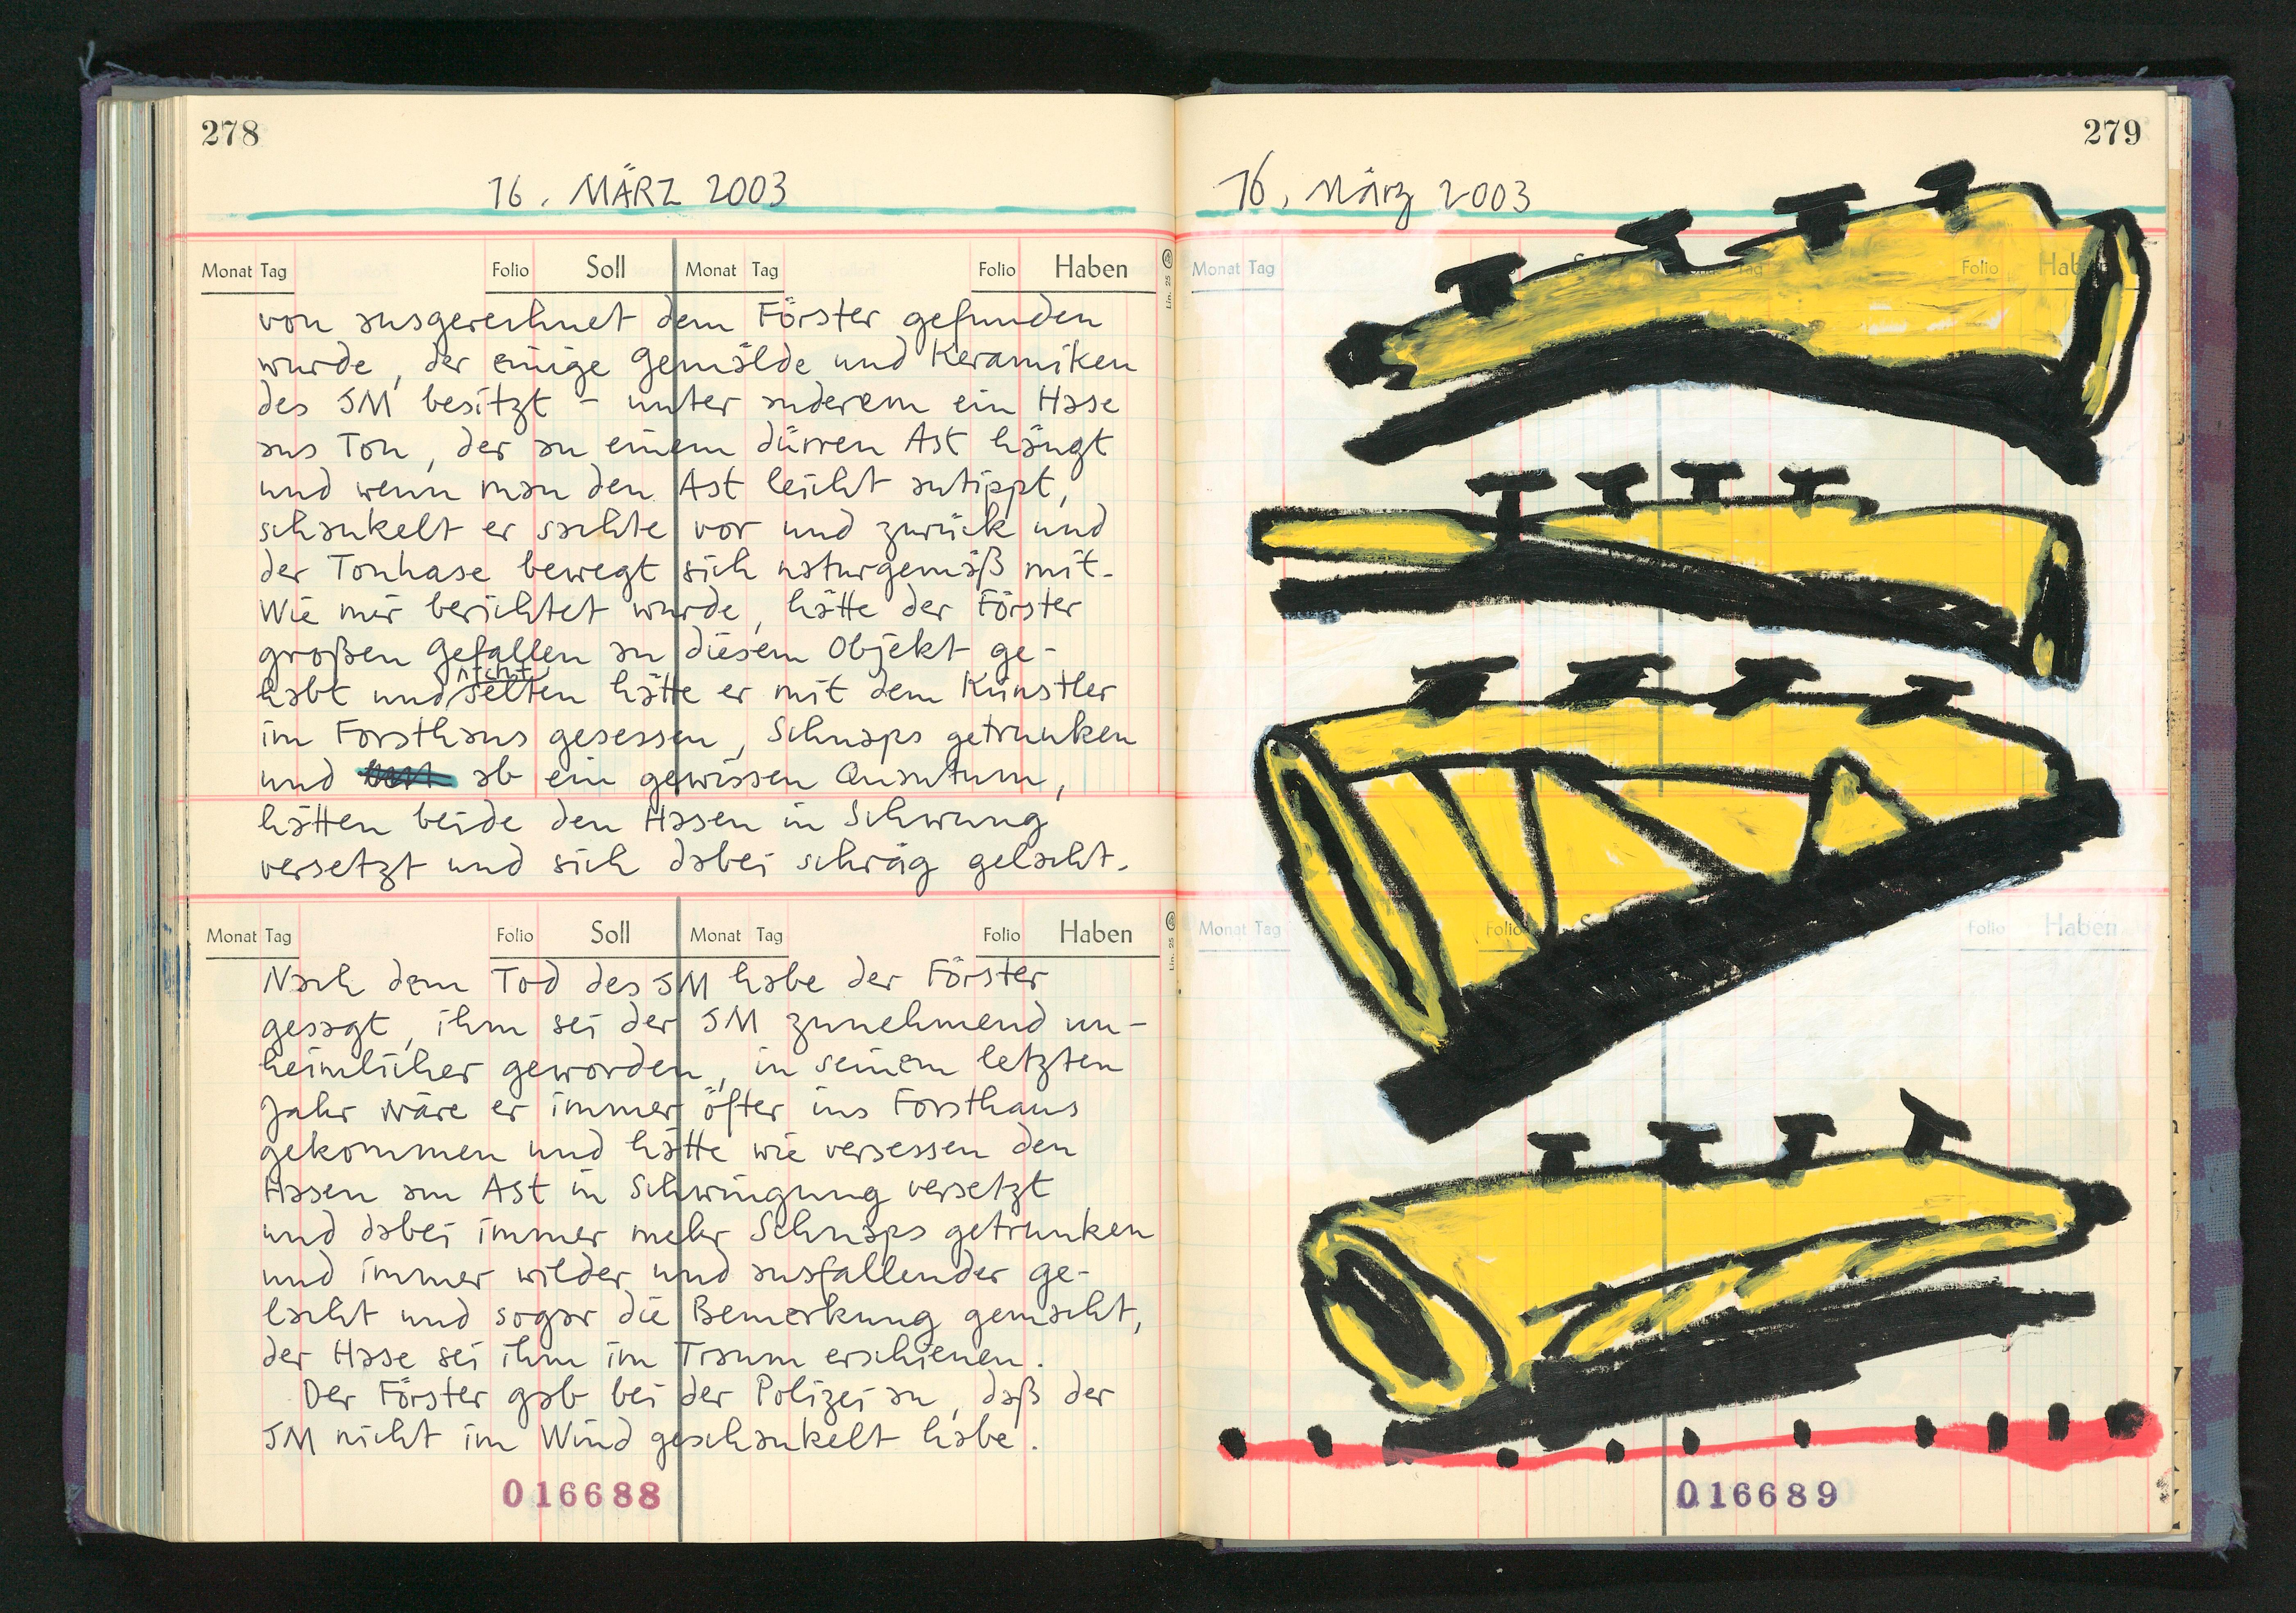 278
16. MÄRZ 2003
Monat Tag Folio Soll Monat Tag Folio Haben
von ausgerechnet dem Förster gefunden
wurde, der einige Gemälde und Keramiken
des JM besitzt – unter anderem ein Hase
aus Ton, der an einem dürren Ast hängt
und wenn man den Ast leicht antippt,
schaukelt er sachte vor und zurück und
der Tonhase bewegt sich naturgemäß mit.
Wie mir berichtet wurde, hätte der Förster
großen Gefallen an diesem Objekt ge-
nicht
habt und selten hätte er mit dem Künstler
im Forsthaus gesessen, Schnaps getrunken
und ab ein gewissen Quantum,
hätten beide den Hasen in Schwung
versetzt und sich dabei schräg gelacht.
Monat Tag Folio Soll Monat Tag Folio Haben
Nach dem Tod des JM habe der Förster
gesagt, ihm sei der JM zunehmend un-
heimlicher geworden, in seinem letzten
Jahr wäre er immer öfter ins Forsthaus
gekommen und hätte wie versessen den
Hasen am Ast in Schwingung versetzt
und dabei immer mehr Schnaps getrunken
und immer wilder und ausfallender ge-
lacht und sogar die Bemerkung gemacht,
der Hase sei ihm im Traum erschienen.
Der Förster gab bei der Polizei an, daß der
JM nicht im Wind geschaukelt habe.
016688
Lin. 25
Lin. 25
279
16. März 2003
Monat Tag Tag Folio Haben
Monat Tag Folio Folio Haben
016689